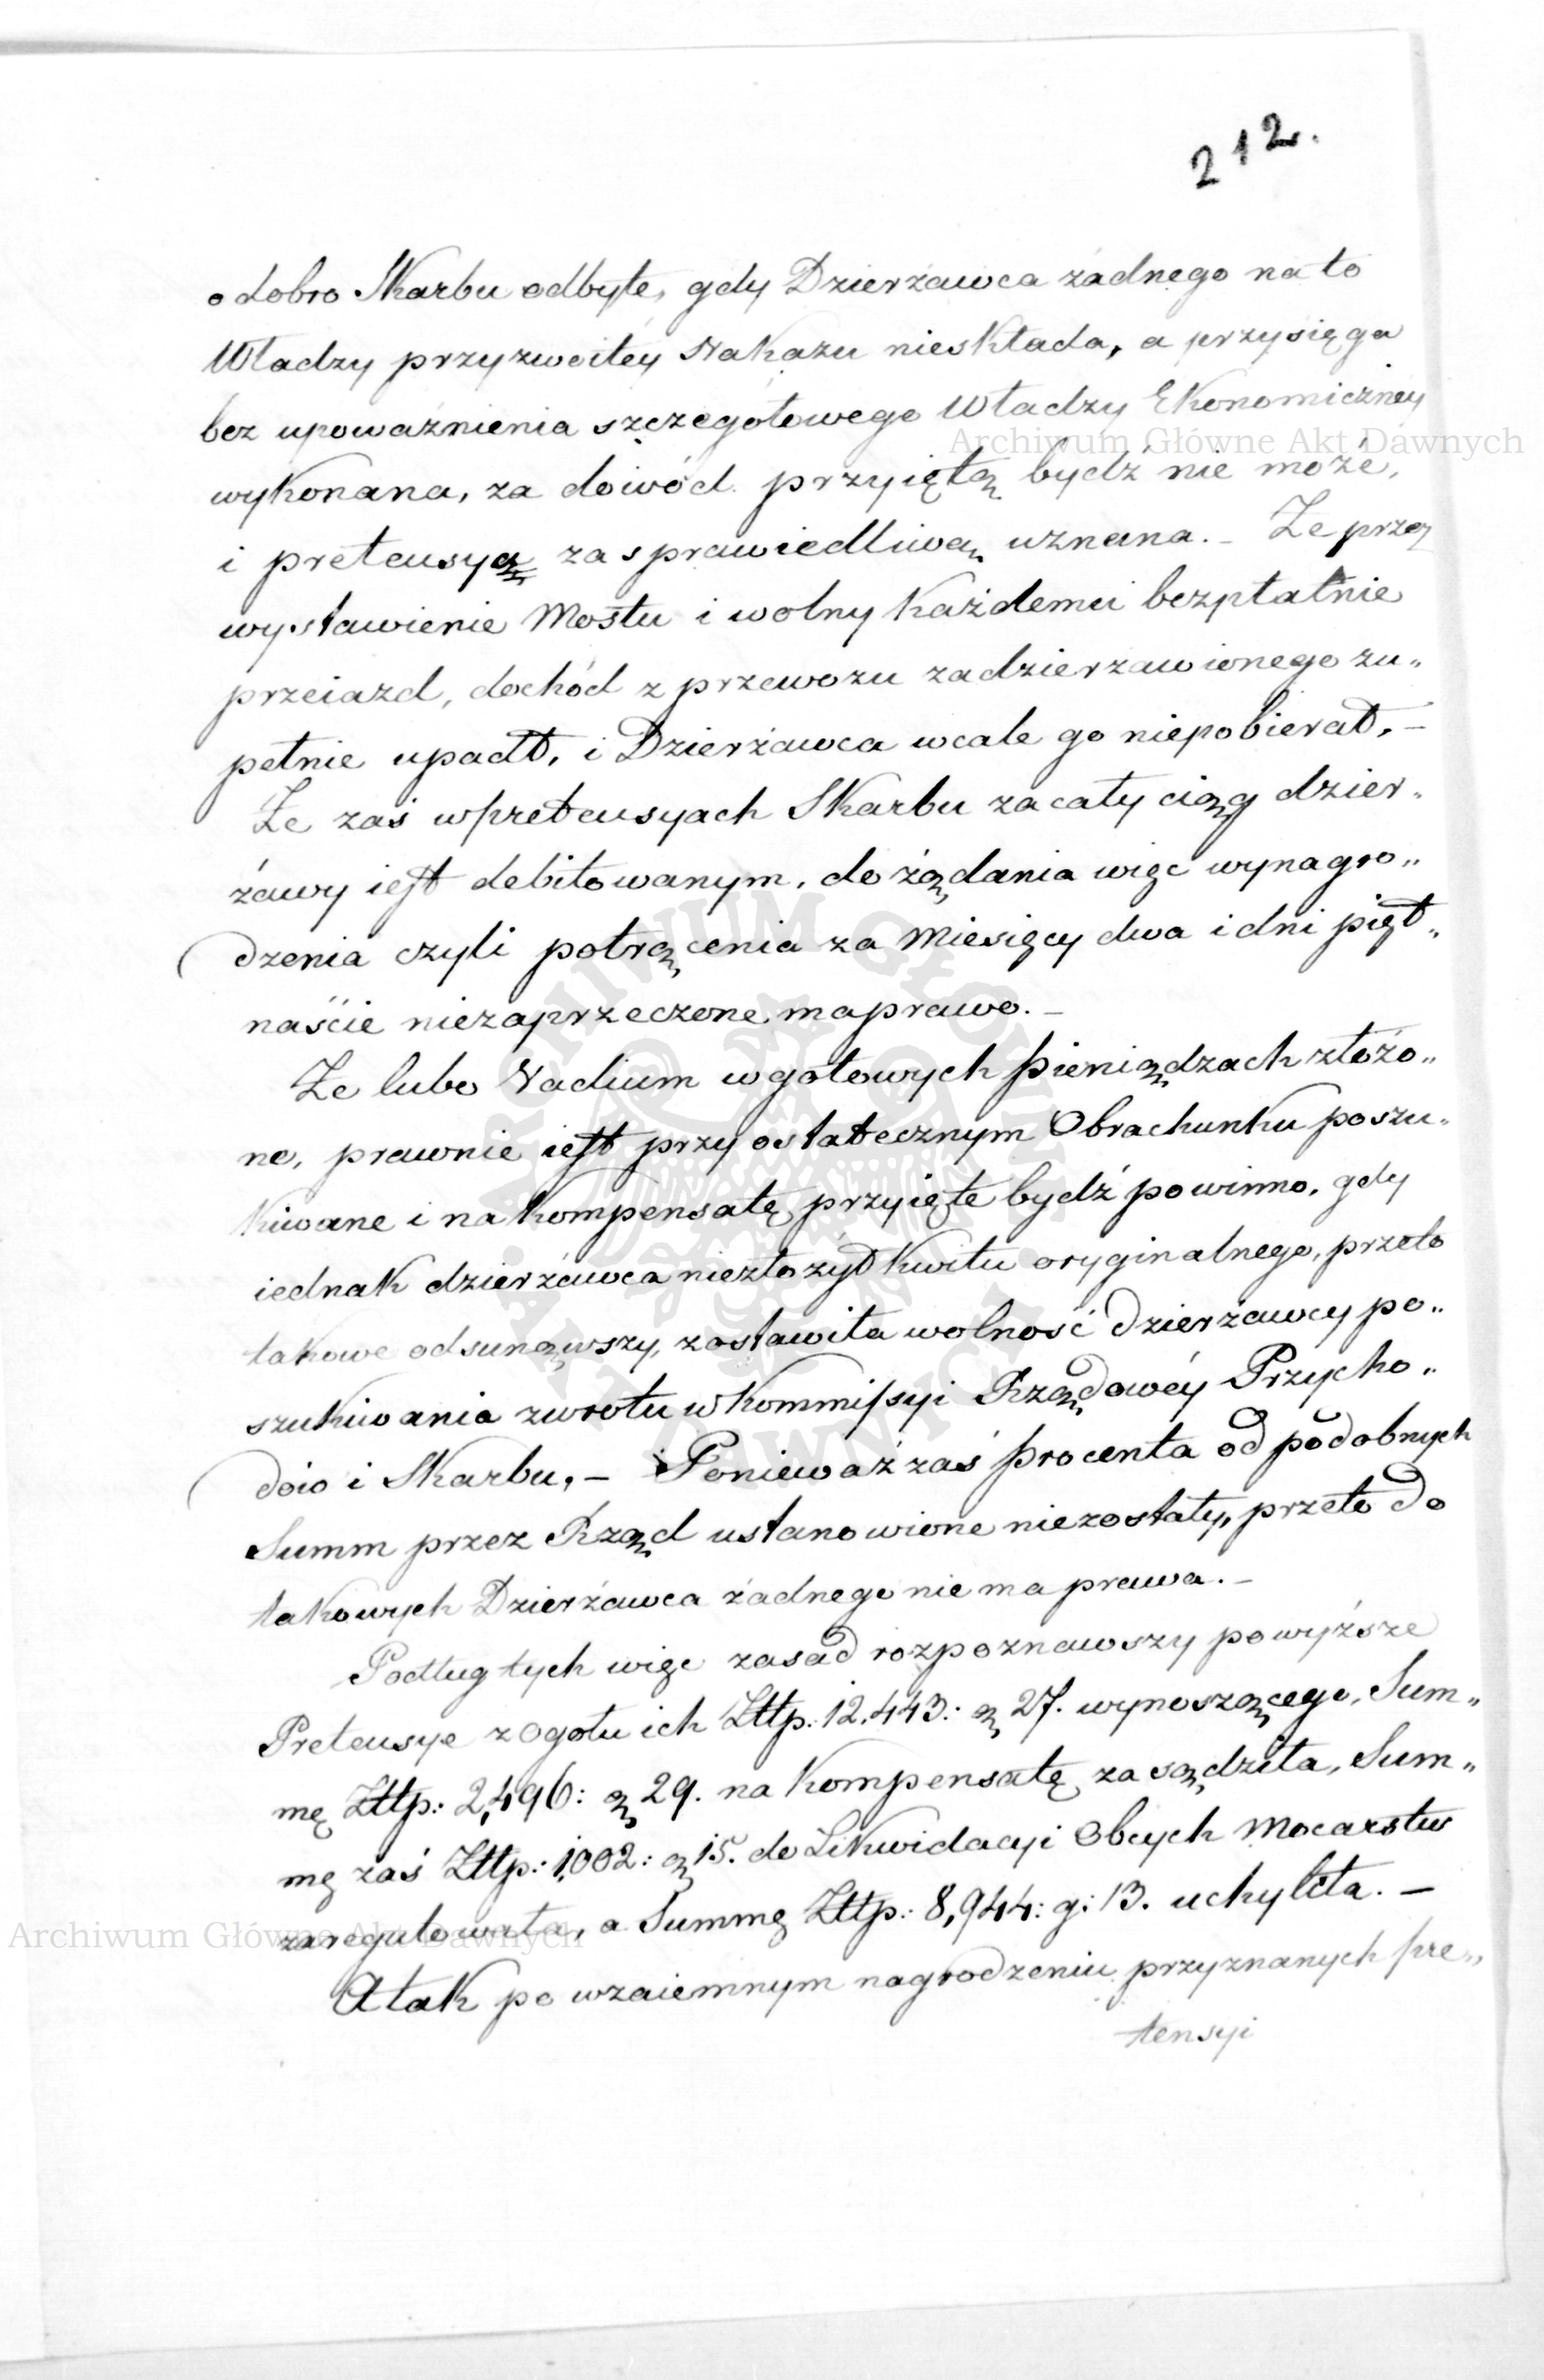 212.
o dobro Skarbu odbyte, gdy Dzierżawca żadnego na to
Władzy przyzwoitéy Nakazu nieskłada, a przysięga
bez upoważnienia szczegółowego Władzy Ekonomicznéy
Archiwum Główne Akt Dawnych
wykonana, za dowód przyiętą bydź nie może,
i pretensyą za sprawiedliwą uznana. – Że przez
wystawienie Mostu i wolny każdemu bezpłatnie
przeiazd, dochód z przewozu zadzierzawionego zu„
pełnie upadł, i Dzierżawca wcale go niepobierał, –
Że zaś w pretensyach Skarbu za cały ciąg dzier„
żawy iest debitowanym, do żądania więc wynagro„
dzenia czyli potrącenia za Miesięcy dwa i dni pięt„
naście niezaprzeczone ma prawo. –
Że lubo Vadium w gotowych pieniądzach złożo„
ne, prawnie iest przy ostatecznym Obrachunku poszu„
kiwane i na kompensatę przyięte bydź powinno, gdy
iednak dzierżawca niezłożył kwitu oryginalnego, przeto
takowe odsunąwszy, zostawiła wolność Dzierżawcy po„
szukiwania zwrotu w Kommissyi Rządowéy Przycho„
dów i Skarbu, – Ponieważ zaś procenta od podobnych
Summ przez Rząd ustanowione niezostały, przeto do
takowych Dzierżawca żadnego nie ma prawa. –
Podług tych więc zasad rozpoznawszy powyższe
Pretensye z ogołu ich Złłp: 12,443: g 27. wynoszącego, Sum„
mę Złłp: 2,496: g 29. na kompensatę zasądziła, Sum„
mę zaś Złłp: 1,002: g 15. do Likwidacyi Obcych Mocarstw
zaregulowała, a Summę Złłp: 8,944: g: 13. uchyliła. –
Archiwum Główne Akt Dawnych
A tak po wzaiemnym nagrodzeniu przyznanych pre„
tensyi
ARCHIWUM GŁÓWNE AKT DAWNYCH